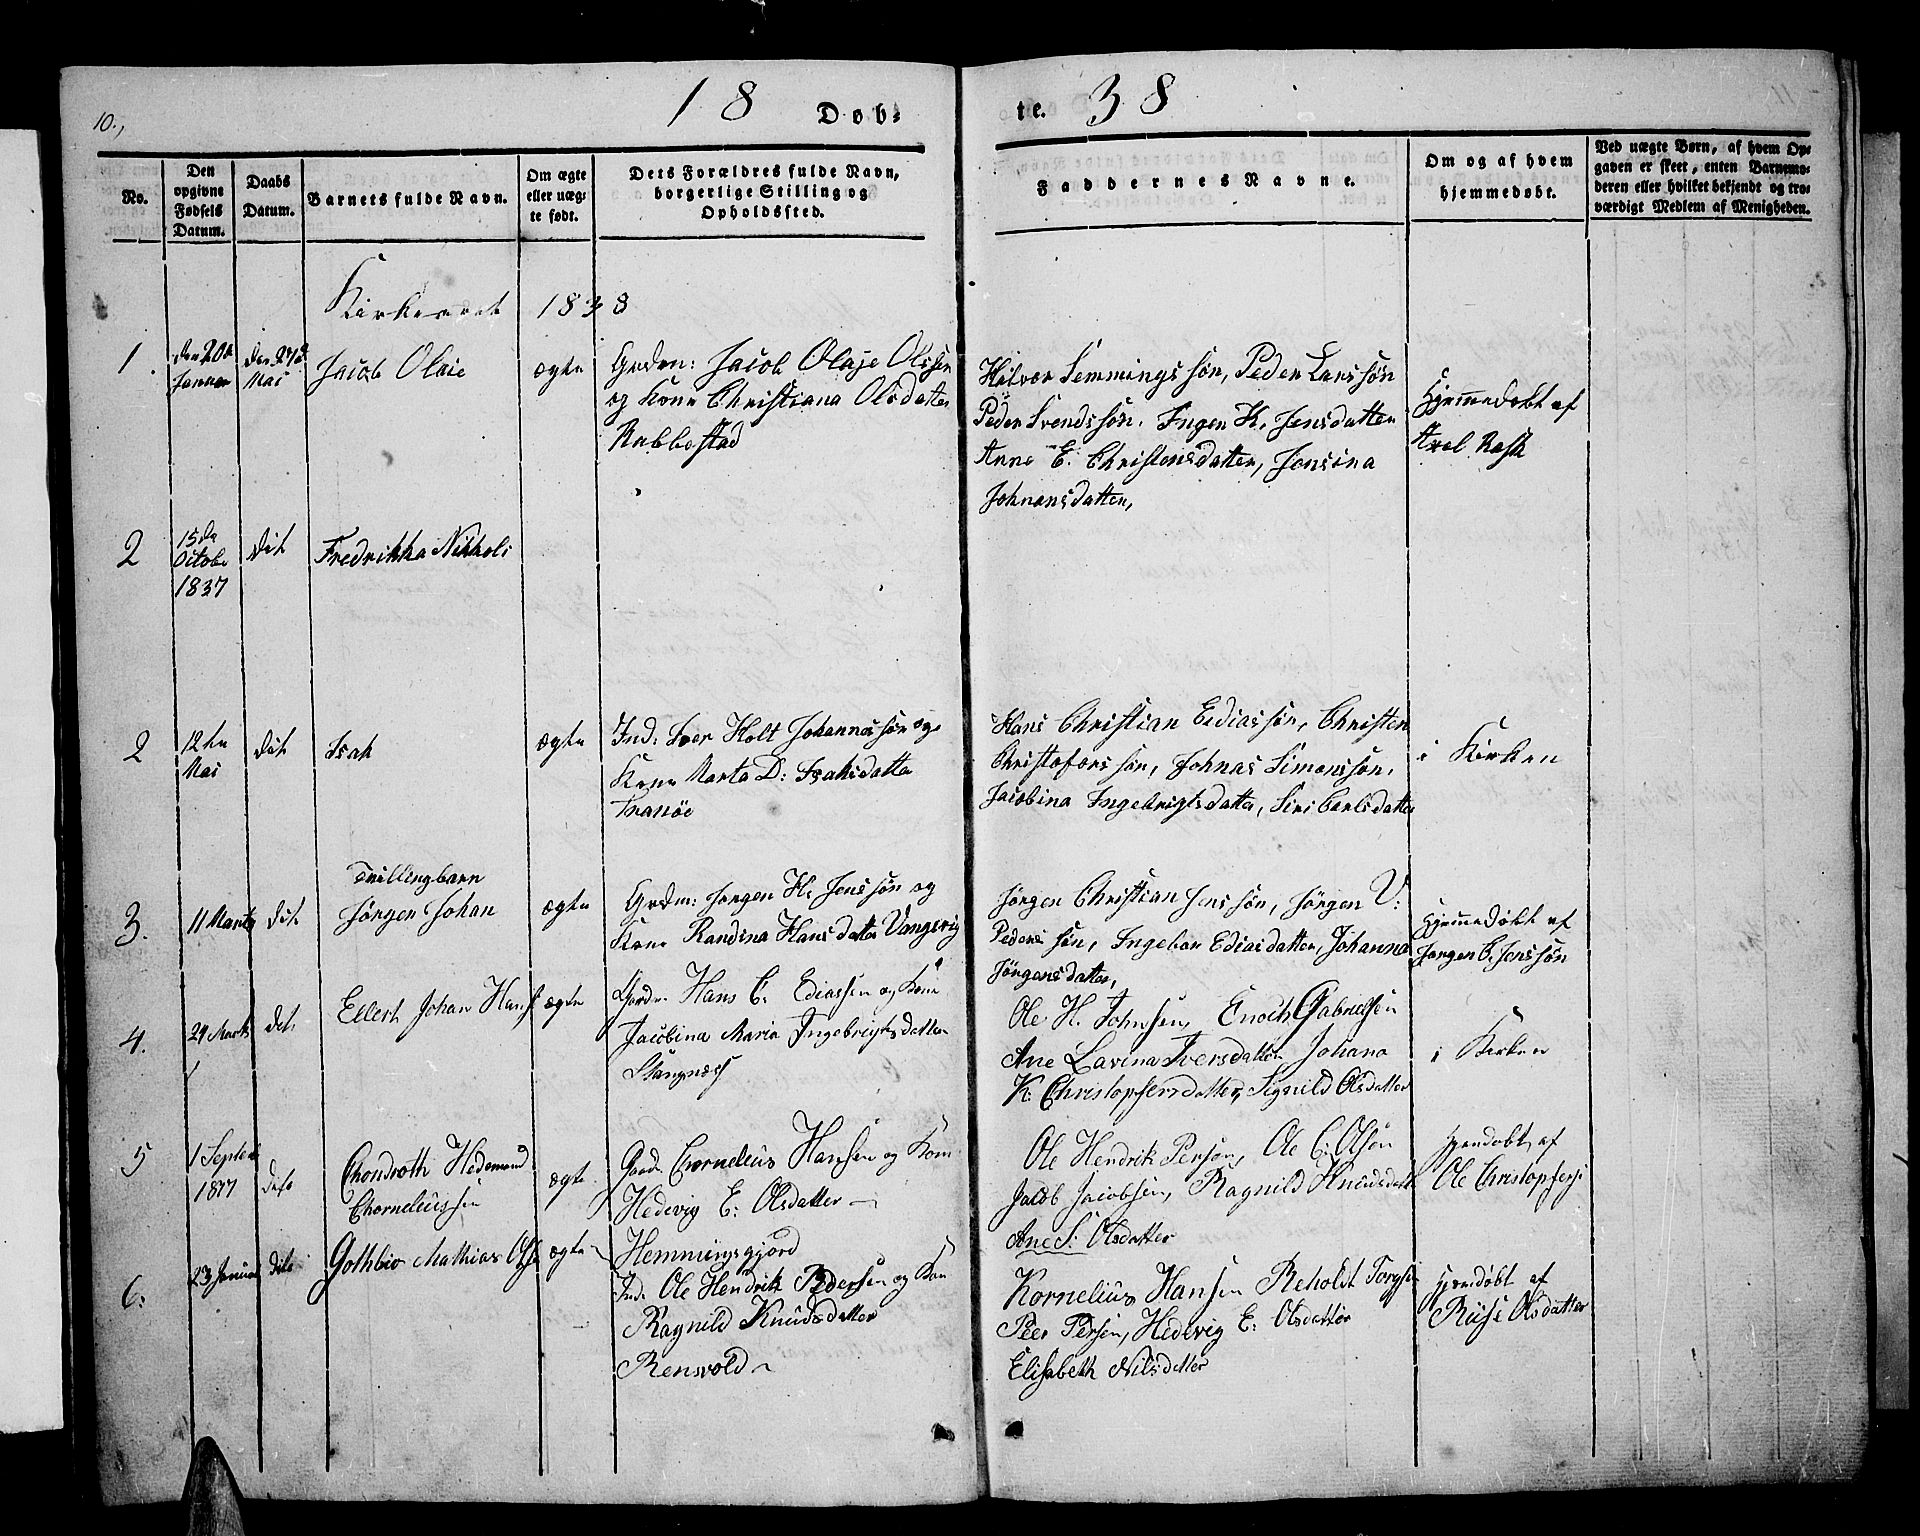 10.,
18 Døb-
te. 38
No.
Den opgivne Fødsels Datum.
Daabs Datum.
Barnets fulde Navn.
Om ægte eller uæg-te født.
Dets Forældres fulde Navn, borgerlige Stilling og Opholdssted.
Faddernes Navne.
Om og af hvem hjemmedøbt.
Ved uægte Børn, af hvem Op-
gaven er skeet, enten Barnemo-
deren eller hvilket bekjendt og tro-
værdigt Medlem af Menigheden.
Kirkeaaret 1838
1.
den 20de
Januar
den 27de
Mai
Jacob Olaie
ægte
Grdm: Jacob Olaje Olssøn
og Kone Christiana Olsdatter
Rabbestad
Halvor Semmingssøn, Peder Larssøn
Peder Svendssøn. Inger K. Jensdatter
Anne E. Christensdatter, Jensina
Johnensdatter,
Hjemmedøbt af
Axel Rask
2
15de
Octobr
1837
dit
Fredrikka Nikkoli
2
12te
Mai
dit
Isak
ægte
Ind: Iver Holt Johannessøn og
Kone Marta D: Isaksdatter
Tranöe
Hans Christian Ediassøn, Christen
Christoferssøn, Johnas Simonssøn,
Jacobina Ingebrigtsdatter, Siri Carlsdatter
i Kirken
Tvillingbarn
3.
11 Marts
dit
Jørgen Johan
ægte
Grdm: Jørgen H. Jenssøn og
Kone Randina Hansdatter Vangsvig
Jørgen Christian Jenssøn, Jørgen V:
Pederssøn, Ingebor Ediasdatter, Johanna
Jörgensdatter,
Hjemmedøbt af
Jørgen C. Jenssøn
4.
24 Marts
det
Ellert Johan Hans
ægte
Gardm. Hans C. Ediassen og Kone
Jacobina Maria Ingebrigtsdatter
Stangnæs
Ole H. Johnsen, Enoch Gabrielsen
Ane Lavina Iversdatter Johana
K. Christophersdatter, Signild Olsdatter
i Kirken
5
1 Septem
1837
dito
Chondroth Hedemand
Chorneliussen
ægte
Gaard. Cornelius Hansen og Kone
Hedevig E: Olsdatter
Hemmingsgjord
Ole Hendrik Persøn, Ole C. Olsøn
Jacob Jacobsen, Ragnild Knudsdatt
Ane S: Olsdatter
hjemdøbt af
Ole Christophers
6:
23 Januar
dito
Gothbio Mathias Olsen
ægte
Ind. Ole Hendrik Pedersen og Kone
Ragnild Knudsdatter
Rensvold
Kornelius Hansen Reholdt Torgsen
Peer Persen, Hedevig E: Olsdatter
Elisabeth Nilsdatter
hjemdøbt af
Riise Olsdatter